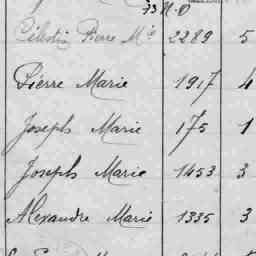 73 N.O
Célestin Pierre Mie 2289 5
Pierre Marie 1917 4
Joseph Marie 175 1
Joseph Marie 1453 3
Alexandre Marie 1335 3